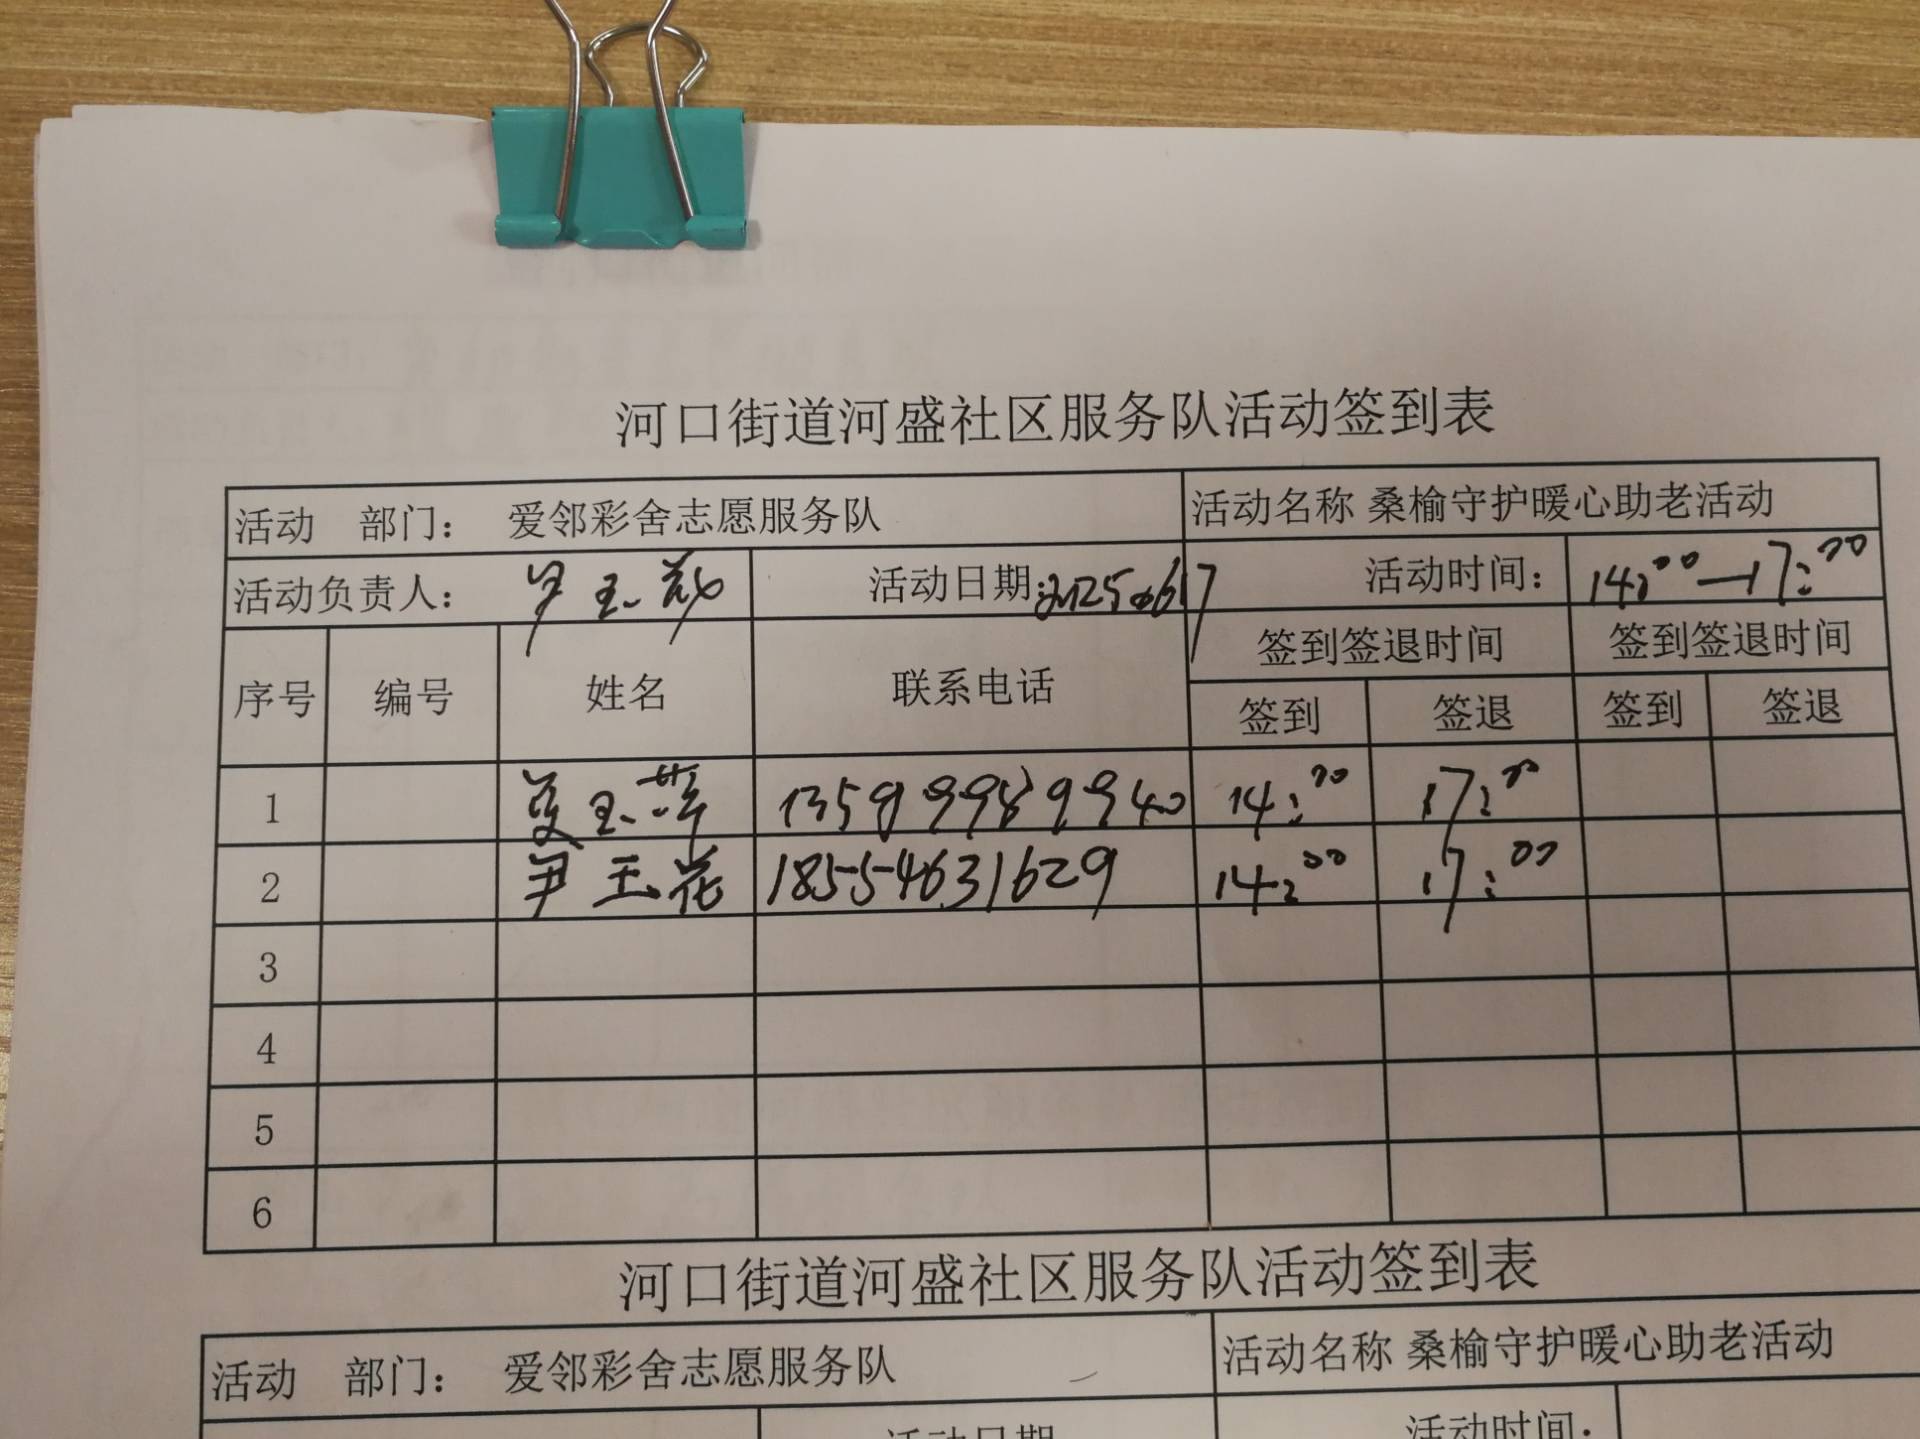 河口街道河盛社区服务队活动签到表
活动 部门： 爱邻彩舍志愿服务队 活动名称 桑榆守护暖心助老活动
活动负责人： 尹玉花 活动日期: 2025.6.17 活动时间： 14:00—17:00
签到签退时间 签到签退时间
序号 编号 姓名 联系电话 签到 签退 签到 签退
1 玉萍 13599989940 14:00 17:00
2 尹玉花 18554631629 14:00 17:00
3
4
5
6
河口街道河盛社区服务队活动签到表
活动 部门： 爱邻彩舍志愿服务队 活动名称 桑榆守护暖心助老活动
活动日期 活动时间：